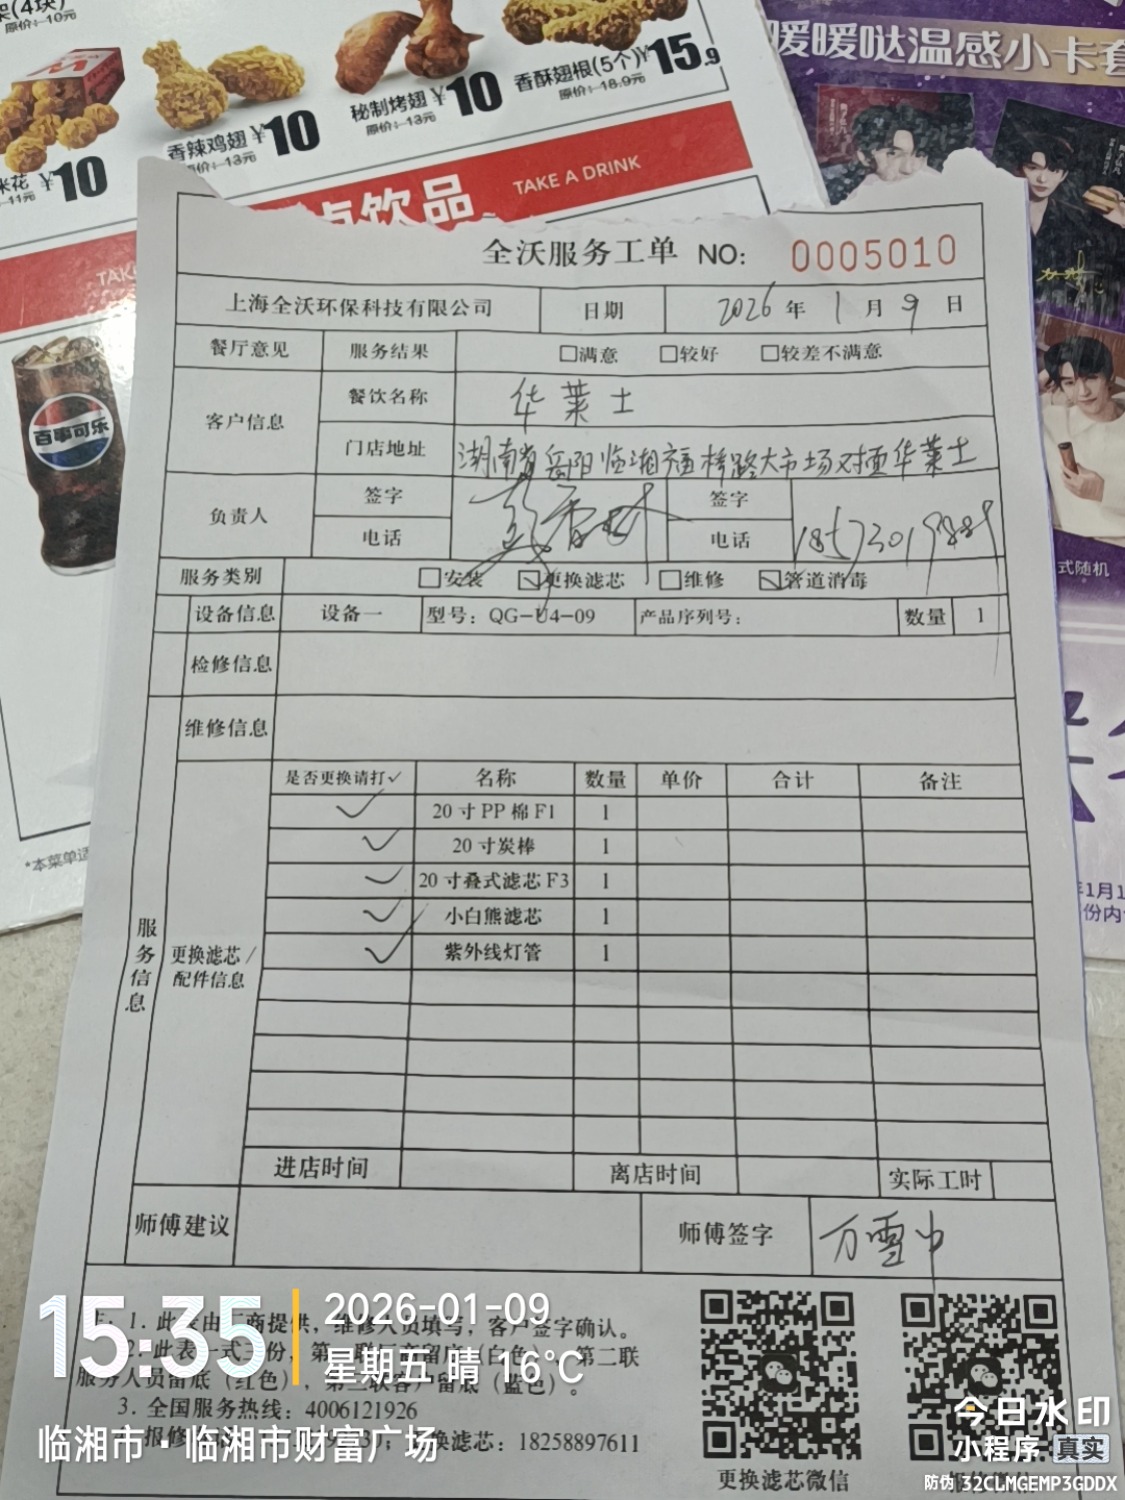 (4块)
原价:10元
¥10
11元
香辣鸡翅 ¥10
原价:13元
秘制烤翅 ¥10
原价:13元
香酥翅根(5个) ¥15.9
原价:18.9元
饮品
TAKE A DRINK
暖暖哒温感小卡套
百事可乐
全沃服务工单 NO: 0005010
上海全沃环保科技有限公司 日期 2026 年 1 月 9 日
餐厅意见 服务结果 □满意 □较好 □较差不满意
客户信息 餐饮名称 华莱士
门店地址 湖南省岳阳临湘福梓路大市场对面华莱士
负责人 签字 签字
电话 电话
服务类别 □安装 ☑更换滤芯 □维修 ☑管道消毒
设备信息 设备一 型号：QG-U4-09 产品序列号： 数量 1
检修信息
维修信息
服务信息
更换滤芯/配件信息
是否更换请打✓ 名称 数量 单价 合计 备注
✓ 20寸PP棉F1 1
✓ 20寸炭棒 1
✓ 20寸叠式滤芯F3 1
✓ 小白熊滤芯 1
✓ 紫外线灯管 1
进店时间 离店时间 实际工时
师傅建议 师傅签字 万雪中
3. 全国服务热线：4006121926
更换滤芯：18258897611
更换滤芯微信
15:35
2026-01-09
星期五 晴 16°C
临湘市·临湘市财富广场
今日水印
小程序 真实
防伪 32CLMGEMP3GDDX
式随机